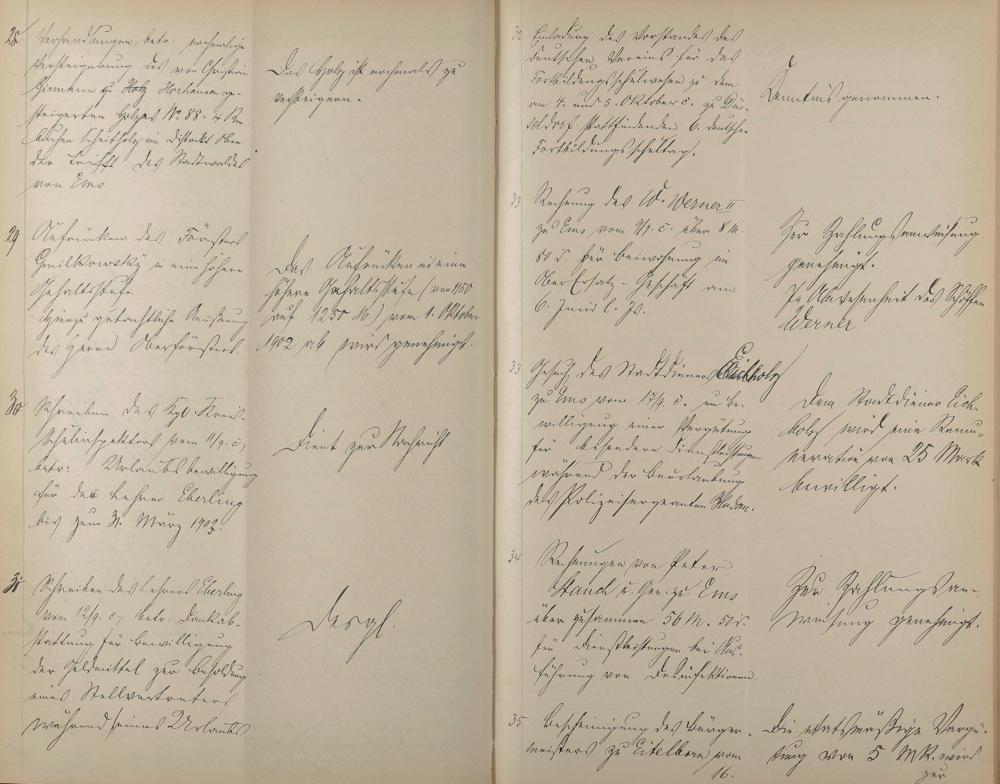 28 Verhandlungen, betr. nochmalige
Versteigerung des von Christian
zu Holz Horhausen er-
steigerten Holzes No 88 = 4 Rm
Buchen Scheitholz im Distrikt Ober
der Trift des Stadtwaldes
von Ems.
Das Holz ist nochmals zu
versteigern.
29 Aufrücken des Försters
Gmilkowsky in eine höhere
Gehaltsstufe.
Hierzu gutachtliche Äusserung
des Herrn Oberförsters.
Das Aufrücken in eine
höhere Gehaltsstufe (von 1150
auf 1250 M.) vom 1. Oktober
1902 ab wird genehmigt.
30 Schreiben des Kgl. Kreis-
Schulinspektors vom 11/9. c.,
betr: Urlaubsbewilligung
für den Lehrer Eberling
bis zum 31. März 1903.
Dient zur Nachricht.
31 Schreiben des Lehrers Eberling
vom 12/9. c., betr. Dankab-
stattung für Bewilligung
der Geldmittel zur Besoldung
eines Stellvertreters
während seines Urlaubs
Desgl.
32 Einladung des Vorstandes des
Deutschen Vereins für das
Fortbildungsschulwesen zu dem
am 4. und 5. Oktober c. zu Düs-
seldorf stattfindenden 6. deutschen
Fortbildungsschultag.
Kenntnis genommen.
33 Rechnung des W. Werner II
zu Ems vom 9/9. c. über 8 M.
80 d. für Beiwohnung im
Ober Ersatz-Geschäft am
6. Juni l. Js.
Zur Zahlungsanweisung
genehmigt.
In Abwesenheit des Schöffen
Werner
33 Gesuch des Stadtdieners Eichholz
zu Ems vom 17/9. c. um Be-
willigung einer Vergütung
für besondere Dienstleistungen
während der Beurlaubung
des Polizeisergeanten
Dem Stadtdiener Eich-
holz wird eine Remu-
neration von 25 Mark
bewilligt.
34 Rechnungen von Peter
Stauch u. Gen. zu Ems
über zusammen 56 M. 50 d.
für Dienstleistungen bei Aus-
führung von Desinfektionen.
Zur Zahlungsan-
weisung genehmigt.
35 Bescheinigung des Bürger-
meisters zu Eitelborn vom
16.
Die etatsmäßige Vergü-
tung von 5 MK. wird
zur